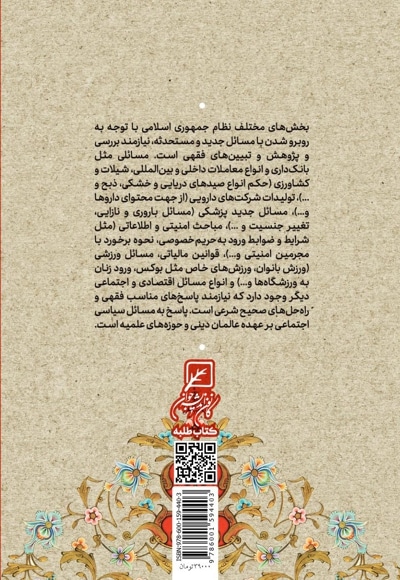 بخش‌های مختلف نظام جمهوری اسلامی با توجه به
روبرو شدن با مسائل جدید و مستحدثه، نیازمند بررسی
و پژوهش و تبیین‌های فقهی است. مسائلی مثل
بانک‌داری و انواع معاملات داخلی و بین‌المللی، شیلات و
کشاورزی (حکم انواع صیدهای دریایی و خشکی، ذبح و
...)، تولیدات شرکت‌های دارویی (از جهت محتوای داروها
و...)، مسائل جدید پزشکی (مسائل باروری و نازایی،
تغییر جنسیت و ...)، مباحث امنیتی و اطلاعاتی (مثل
شرایط و ضوابط ورود به حریم خصوصی، نحوه برخورد با
مجرمین امنیتی و...)، قوانین مالیاتی، مسائل ورزشی
(ورزش بانوان، ورزش‌های خاص مثل بوکس، ورود زنان
به ورزشگاه‌ها و...) و انواع مسائل اقتصادی و اجتماعی
دیگر وجود دارد که نیازمند پاسخ‌های مناسب فقهی و
راه‌حل‌های صحیح شرعی است. پاسخ به مسائل سیاسی
اجتماعی بر عهده عالمان دینی و حوزه‌های علمیه است.
کتاب طلبه
ISBN: 978-600-159-440-3
9 786001 594403
۳۹۰۰۰ تومان